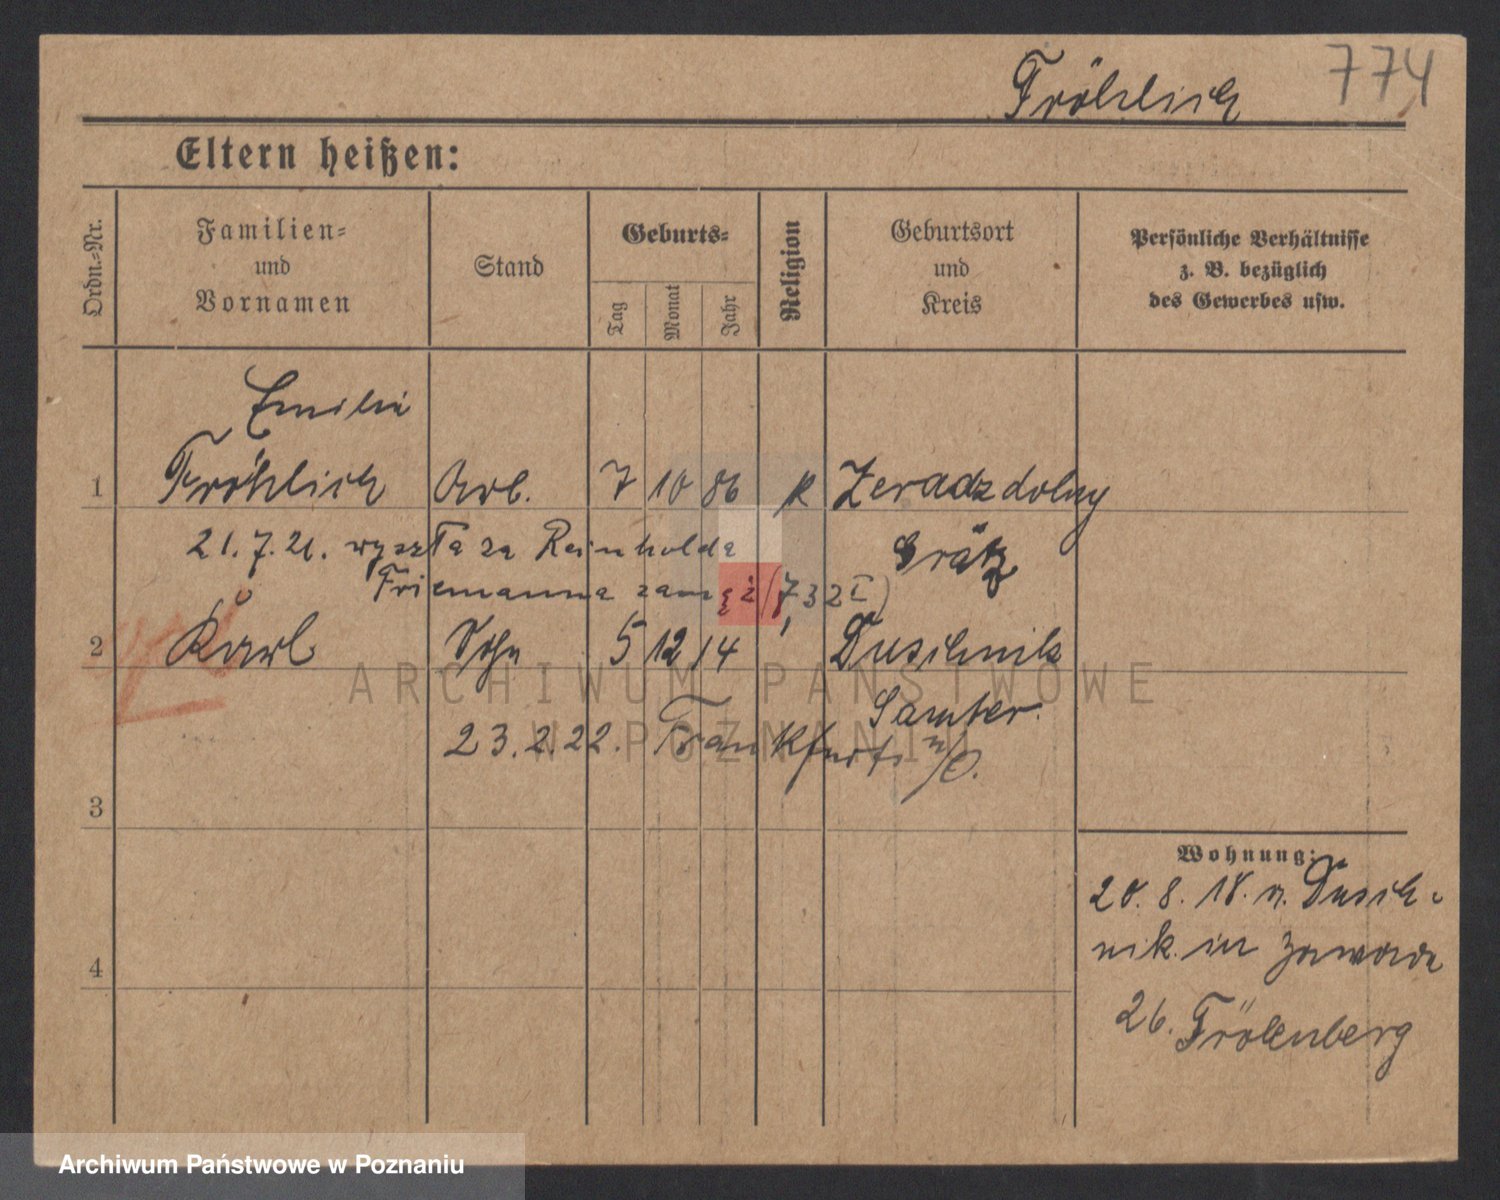 774
Fröhlich
Eltern heißen:
Ordn.-Nr.
Familien-
und
Vornamen
Stand
Geburts-
Tag
Monat
Jahr
Religion
Geburtsort
und
Kreis
Persönliche Verhältnisse
z. B. bezüglich
des Gewerbes usw.
Emilie
1 Fröhlich Arb. 7 10 86 K Zeradz dolny
21.7.21. wyszła za Reinholda Grätz
Friemanna zamęż (7,32 I)
2 Karl Sohn 5 12 14 Duschnik
Samter.
23.2.22. Frankfurt a/O.
3
4
Wohnung:
20.8.18. v. Dusch-
nik in Zawade
26. Frölenberg
ARCHIWUM PAŃSTWOWE
W POZNANIU
Archiwum Państwowe w Poznaniu